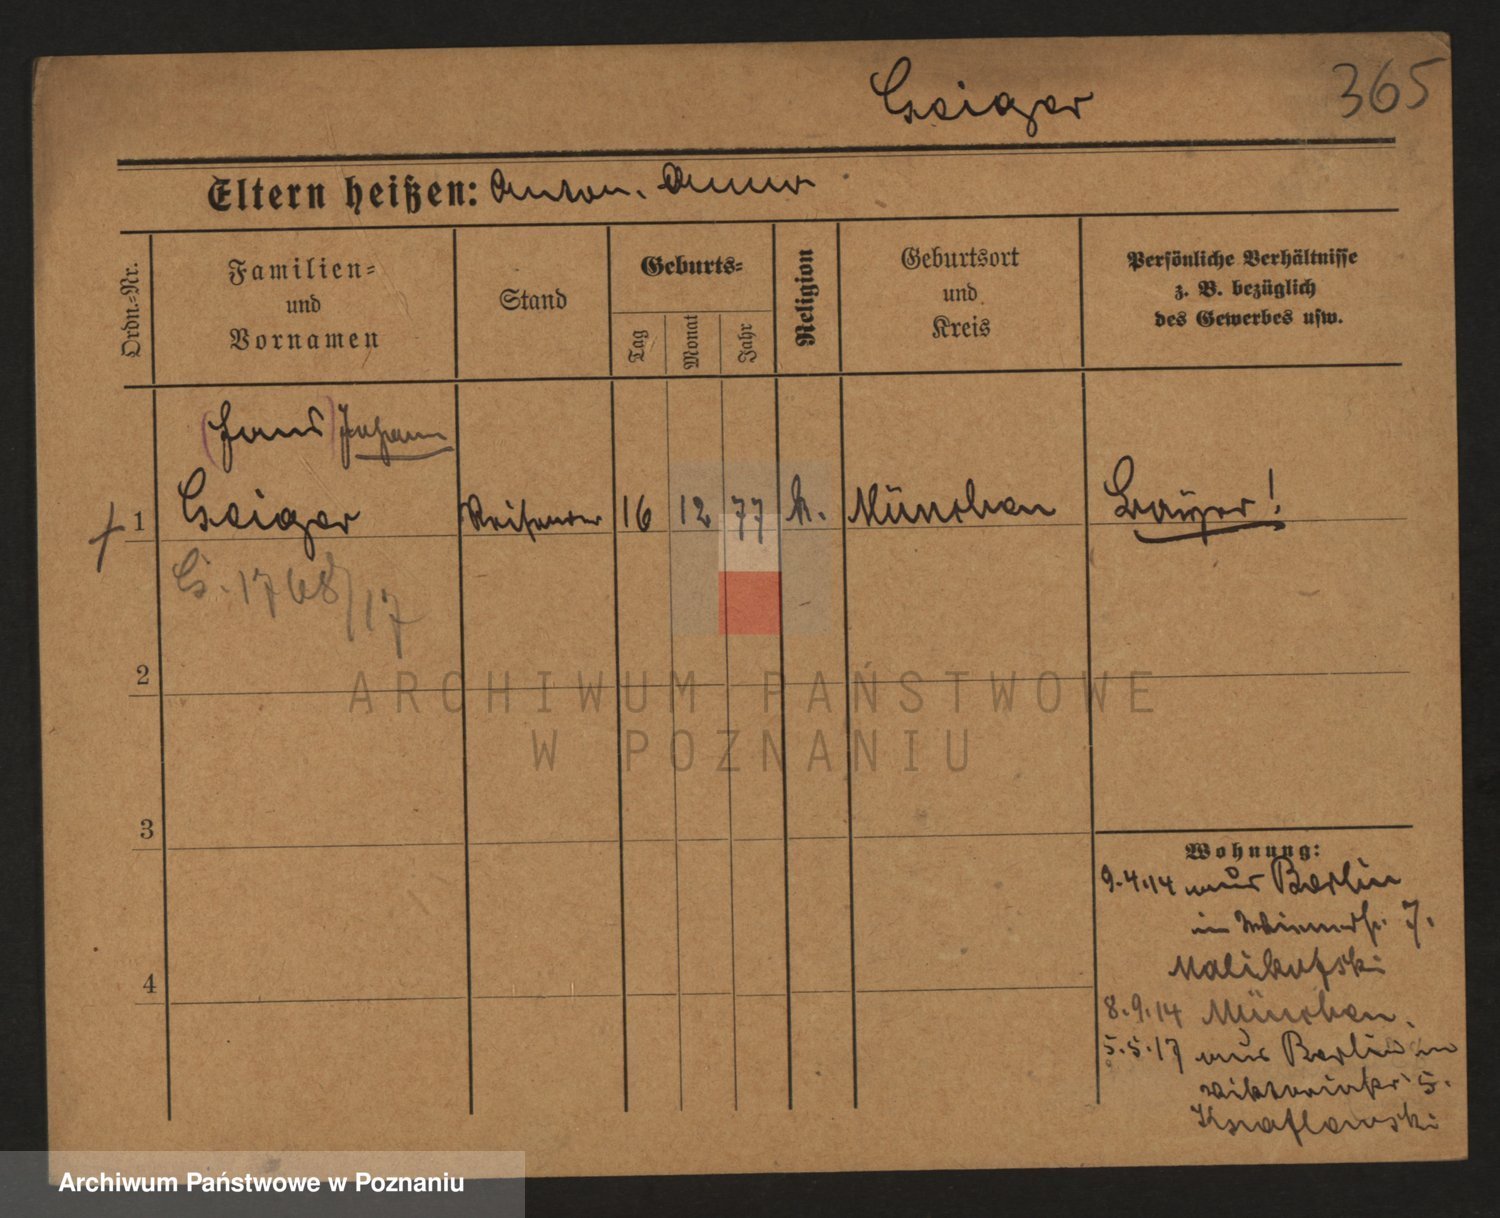 Geiger 365
Eltern heißen: Anton. Anna
Ordn.-Nr.
Familien-
und
Vornamen
Stand
Geburts-
Tag
Monat
Jahr
Religion
Geburtsort
und
Kreis
Persönliche Verhältnisse
z. B. bezüglich
des Gewerbes usw.
(Hans) Johann
1 Geiger Reisender 16 12 77 k. München Bayer!
G. 1768/17
2
3
4
Wohnung:
9.4.14 aus Berlin
in 7.
Malikofski
8.9.14 München.
5.5.17 aus Berlin in
Viktoriastr 5.
ARCHIWUM PAŃSTWOWE
W POZNANIU
Archiwum Państwowe w Poznaniu